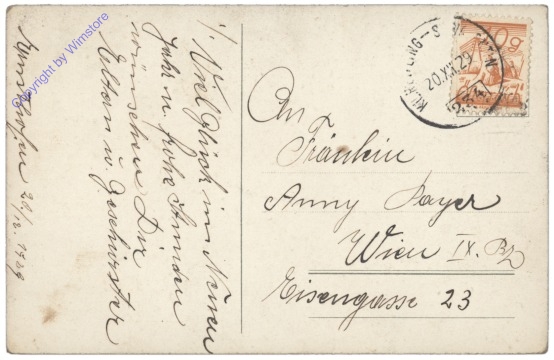 1/ Viel Glück im Neuen
Jahr u. frohe Stunden
wünschen Dir
Eltern u. Geschwister
20/12. 1929
An
Fräulein
Anny Payer
Wien IX. Bz.
Eisengasse 23
20.XII.29
Copyright by Wimstore